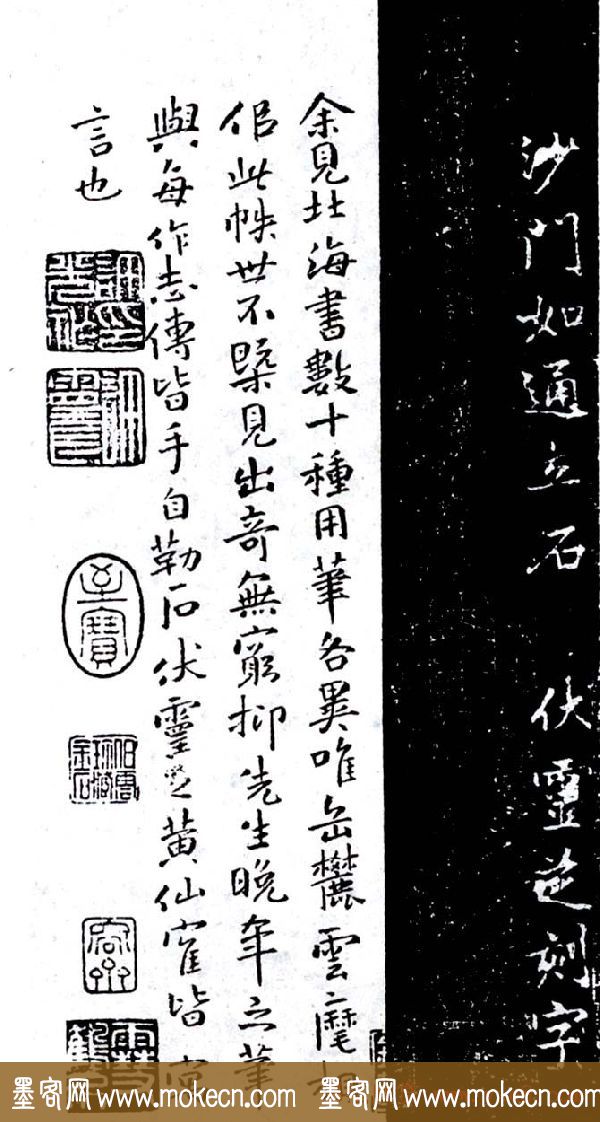 沙門如通立石 伏靈芝刻字
余見北海書數十種用筆各異唯岳麓雲麾相
佀此帙世不槩見出奇無窮抑先生晚年之筆
與每作志傳皆手自勒石伏靈芝黄仙寉皆寓
言也
至寶
墨客网 www.mokecn.com 墨客网 www.mokecn.com